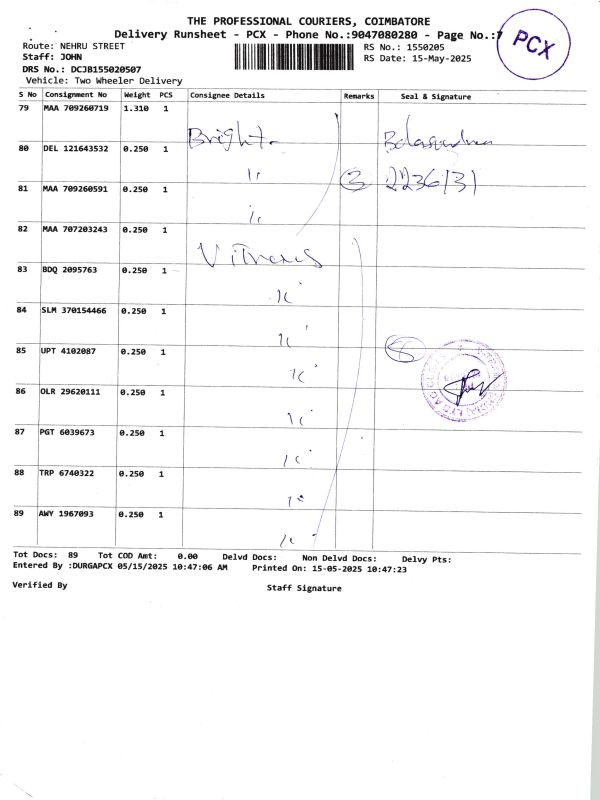 THE PROFESSIONAL COURIERS, COIMBATORE
Delivery Runsheet - PCX - Phone No.:9047080280 - Page No.:7
PCX
Route: NEHRU STREET
RS No.: 1550205
Staff: JOHN
RS Date: 15-May-2025
DRS No.: DCJB155020507
Vehicle: Two Wheeler Delivery
S No Consignment No Weight PCS Consignee Details Remarks Seal & Signature
79 MAA 709260719 1.310 1
Bright
80 DEL 121643532 0.250 1
3 2236131
81 MAA 709260591 0.250 1
82 MAA 707203243 0.250 1
83 BDQ 2095763 0.250 1
84 SLM 370154466 0.250 1
85 UPT 4102087 0.250 1
8
86 OLR 29620111 0.250 1
87 PGT 6039673 0.250 1
88 TRP 6740322 0.250 1
89 AWY 1967093 0.250 1
Tot Docs: 89 Tot COD Amt: 0.00 Delvd Docs: Non Delvd Docs: Delvy Pts:
Entered By :DURGAPCX 05/15/2025 10:47:06 AM Printed On: 15-05-2025 10:47:23
Verified By
Staff Signature